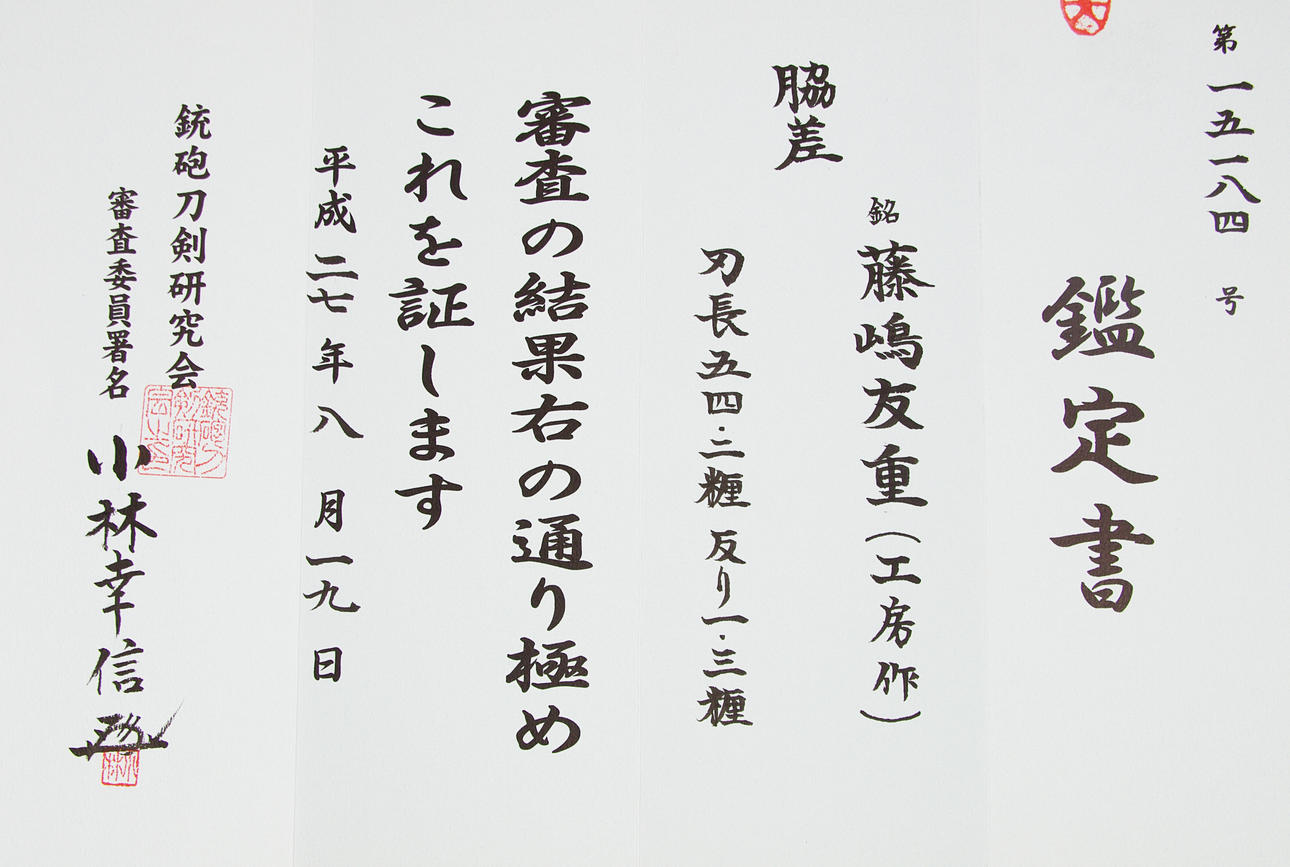 第一五一八四号
鑑定書
脇差
銘 藤嶋友重(工房作)
刃長五四・二糎 反り一・三糎
審査の結果右の通り極め
これを証します
平成二七年八月一九日
銃砲刀剣研究会
審査委員署名 小林幸信